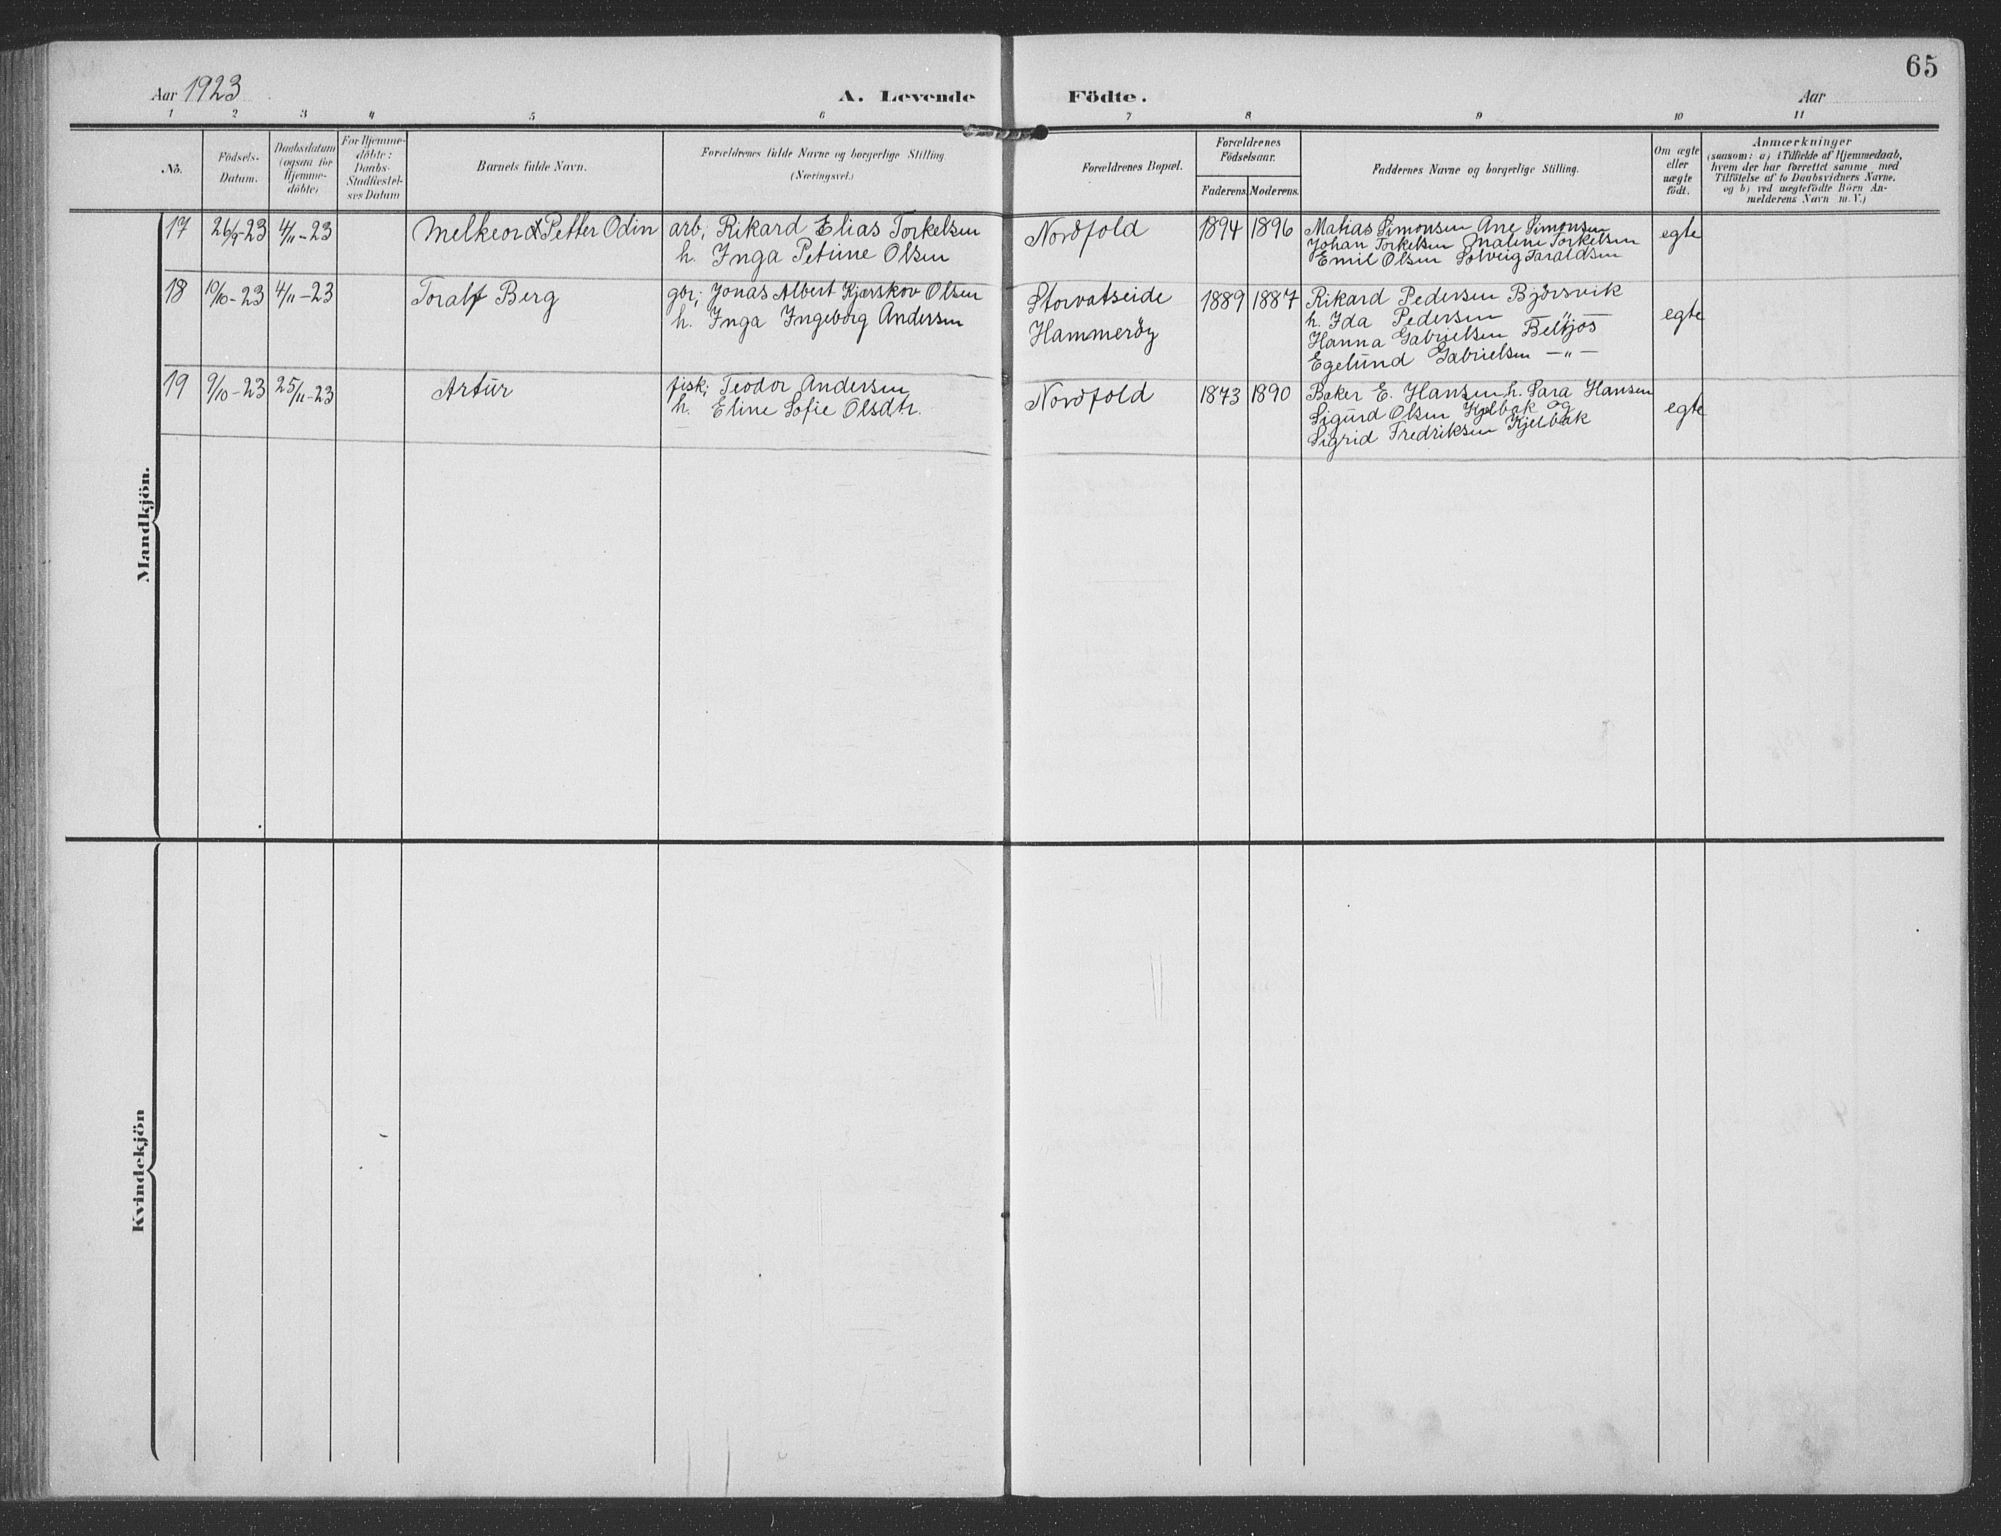 65
Aar 1923
A. Levende Födte.
Aar
1 2 3 4 5 6 7 8 9 10 11
No.
Födsels-
Datum.
Daabsdatum
(ogsaa for
Hjemme-
döbte)
For Hjemme-
döbte:
Daabs-
Stadfæstel-
ses Datum
Barnets fulde Navn.
Forældrenes fulde Navne og borgerlige Stilling
(Næringsvei.)
Forældrenes Bopæl.
Forældrenes
Födselsaar.
Faderens. Moderens.
Faddernes Navne og borgerlige Stilling.
Om ægte
eller
uægte
födt.
Anmærkninger
(saasom: a) i Tilfælde af Hjemmedaab,
hvem der har forrettet samme med
Tilföielse af to Daabsvidners Navne,
og b) ved uægtefödte Börn An-
melderens Navn m. V.)
Mandkjön.
17 26/9-23 4/11-23 Melkeord Petter Odin
arb; Rikard Elias Torkelsen
h. Inga Petrine Olsen
Nordfold 1894 1896
Matias Simonsen Ane Simonsen
Johan Torkelsen Maline Torkelsen
Emil Olsen Solveig Taraldsen
egte
18 10/10-23 4/11-23 Toralf Berg
gbr; Jonas Albert Kjærskov Olsen
h. Inga Ingeborg Andersen
Storvatseide
Hammeröy
1889 1887
Rikard Pedersen Björsvik
h. Ida Pedersen "
Hanna Gabrielsen Beltjös
Egelund Gabrielsen -"-
egte
19 9/10-23 25/11-23 Artur
fisk; Teodor Andersen
h. Eline Sofie Olsdtr.
Nordfold 1873 1890
Baker E. Hansen, h. Sara Hansen
Sigurd Olsen Kjelbak og
Sigrid Fredriksen Kjelbak
egte
Kvindekjön